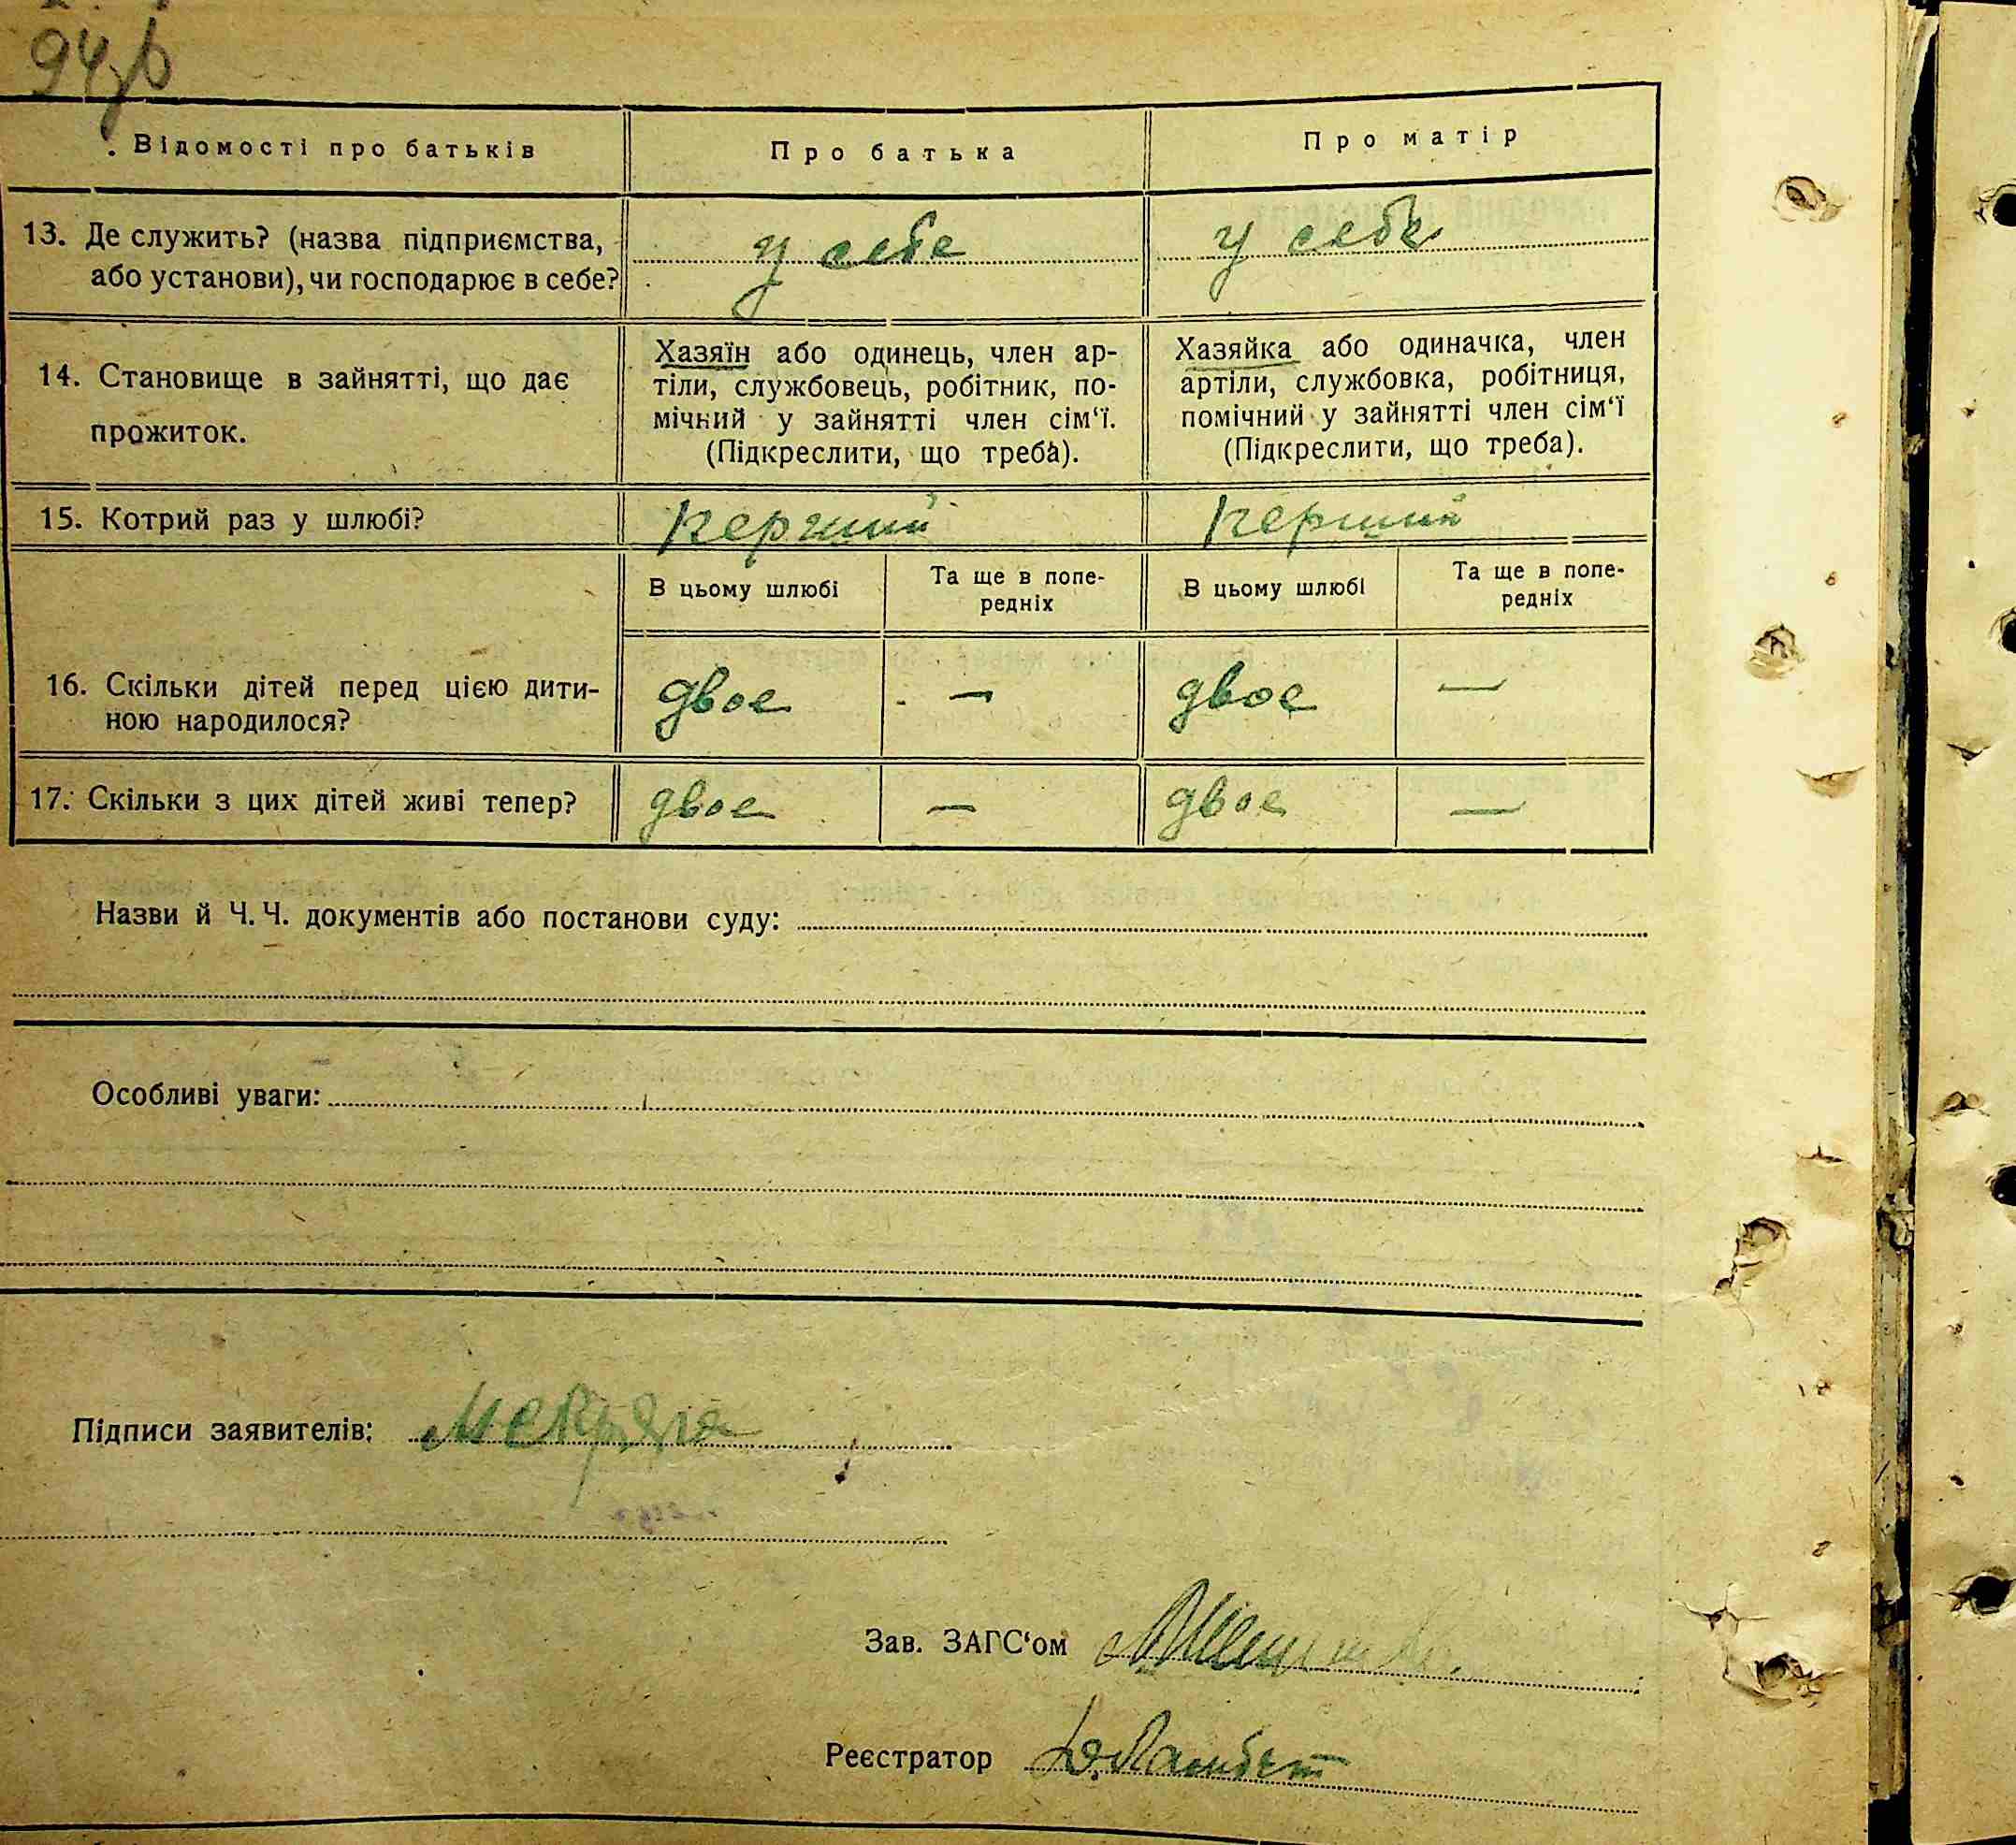 94зв
Відомості про батьків
Про батька
Про матір
13. Де служить? (назва підприємства,
або установи), чи господарює в себе?
у себе
у себе
14. Становище в зайнятті, що дає
прожиток.
Хазяїн або одинець, член ар-
тіли, службовець, робітник, по-
мічний у зайнятті член сім'ї.
(Підкреслити, що треба).
Хазяйка або одиначка, член
артіли, службовка, робітниця,
помічний у зайнятті член сім'ї
(Підкреслити, що треба).
15. Котрий раз у шлюбі?
перший
перший
В цьому шлюбі
Та ще в попе-
редніх
В цьому шлюбі
Та ще в попе-
редніх
16. Скільки дітей перед цією дити-
ною народилося?
двоє
—
двоє
—
17. Скільки з цих дітей живі тепер?
двоє
—
двоє
—
Назви й Ч. Ч. документів або постанови суду:
Особливі уваги:
Підписи заявителів:
Зав. ЗАГС'ом
Реєстратор